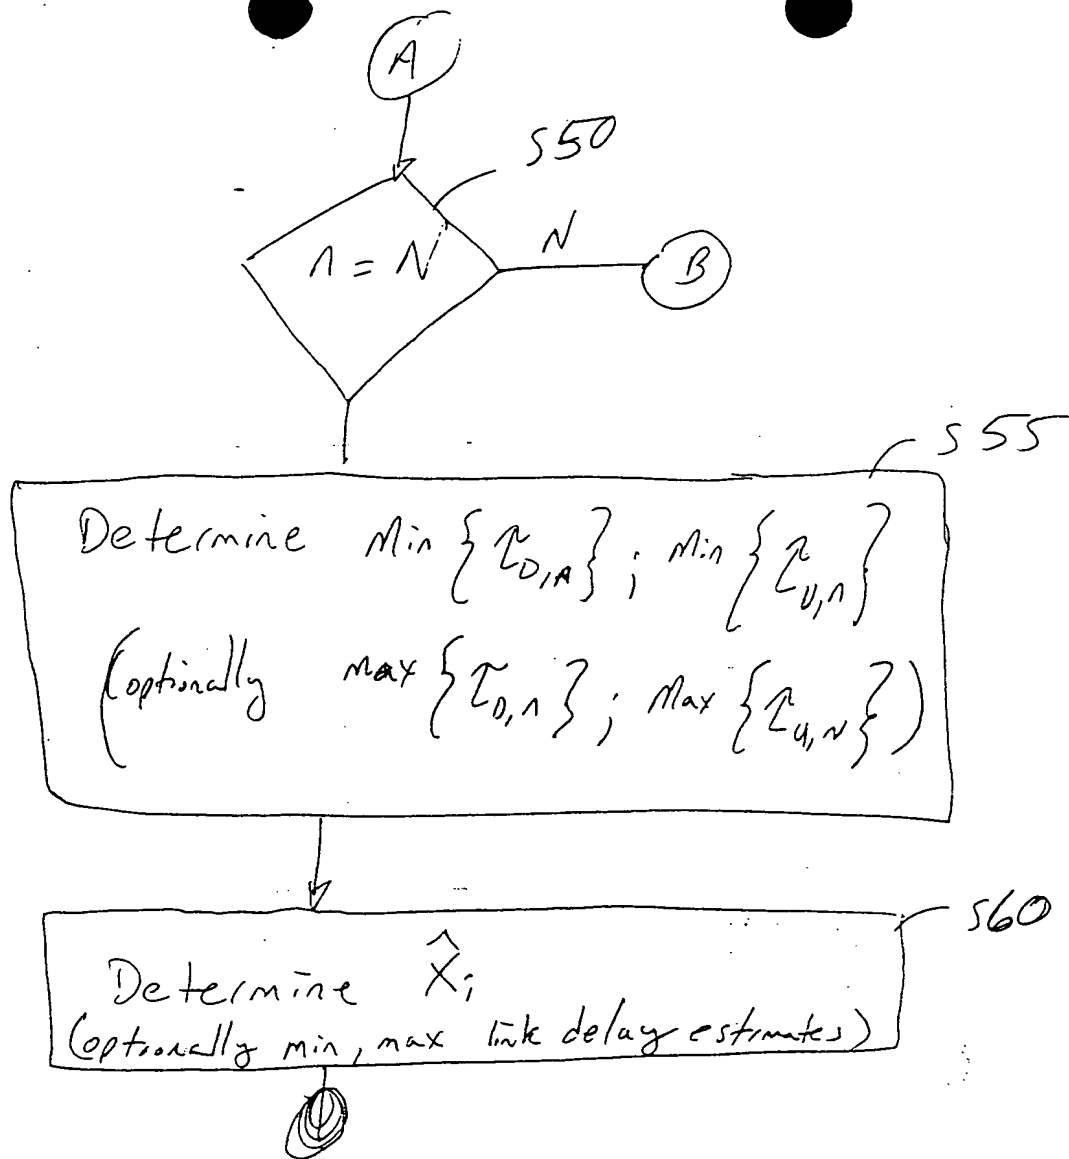 A
S50
n = N
N
B
S55
Determine Min {τ_D,n} ; Min {τ_U,n}
(optionally max {τ_D,n} ; Max {τ_U,N})
S60
Determine X̂_i
(optionally min, max link delay estimates)